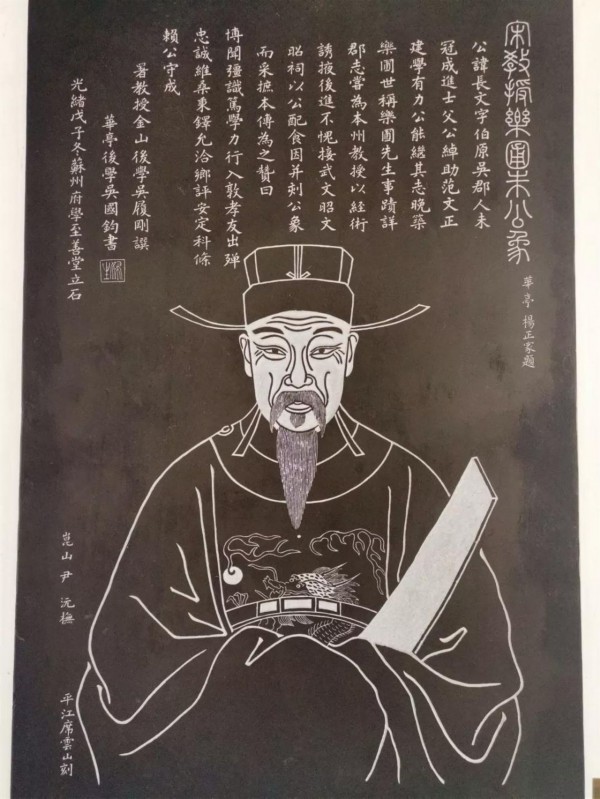 宋教授樂圃朱公象
華亭 楊正家題
公諱長文字伯原吳郡人未
冠成進士父公綽助范文正
建學有力公能繼其志晚築
樂圃世稱樂圃先生事蹟詳
郡志嘗為本州教授以經術
誘掖後進不愧接武文昭文
昭祠以公配食因并刻公象
而采摭本傳為之贊曰
博聞彊識篤學力行入敦孝友出殫
忠誠維桑秉鐸允洽鄉評安定科條
賴公守成
署教授金山後學吳履剛譔
華亭後學吳國鈞書
光緒戊子冬蘇州府學至善堂立石
崑山尹沅橅
平江席雲山刻